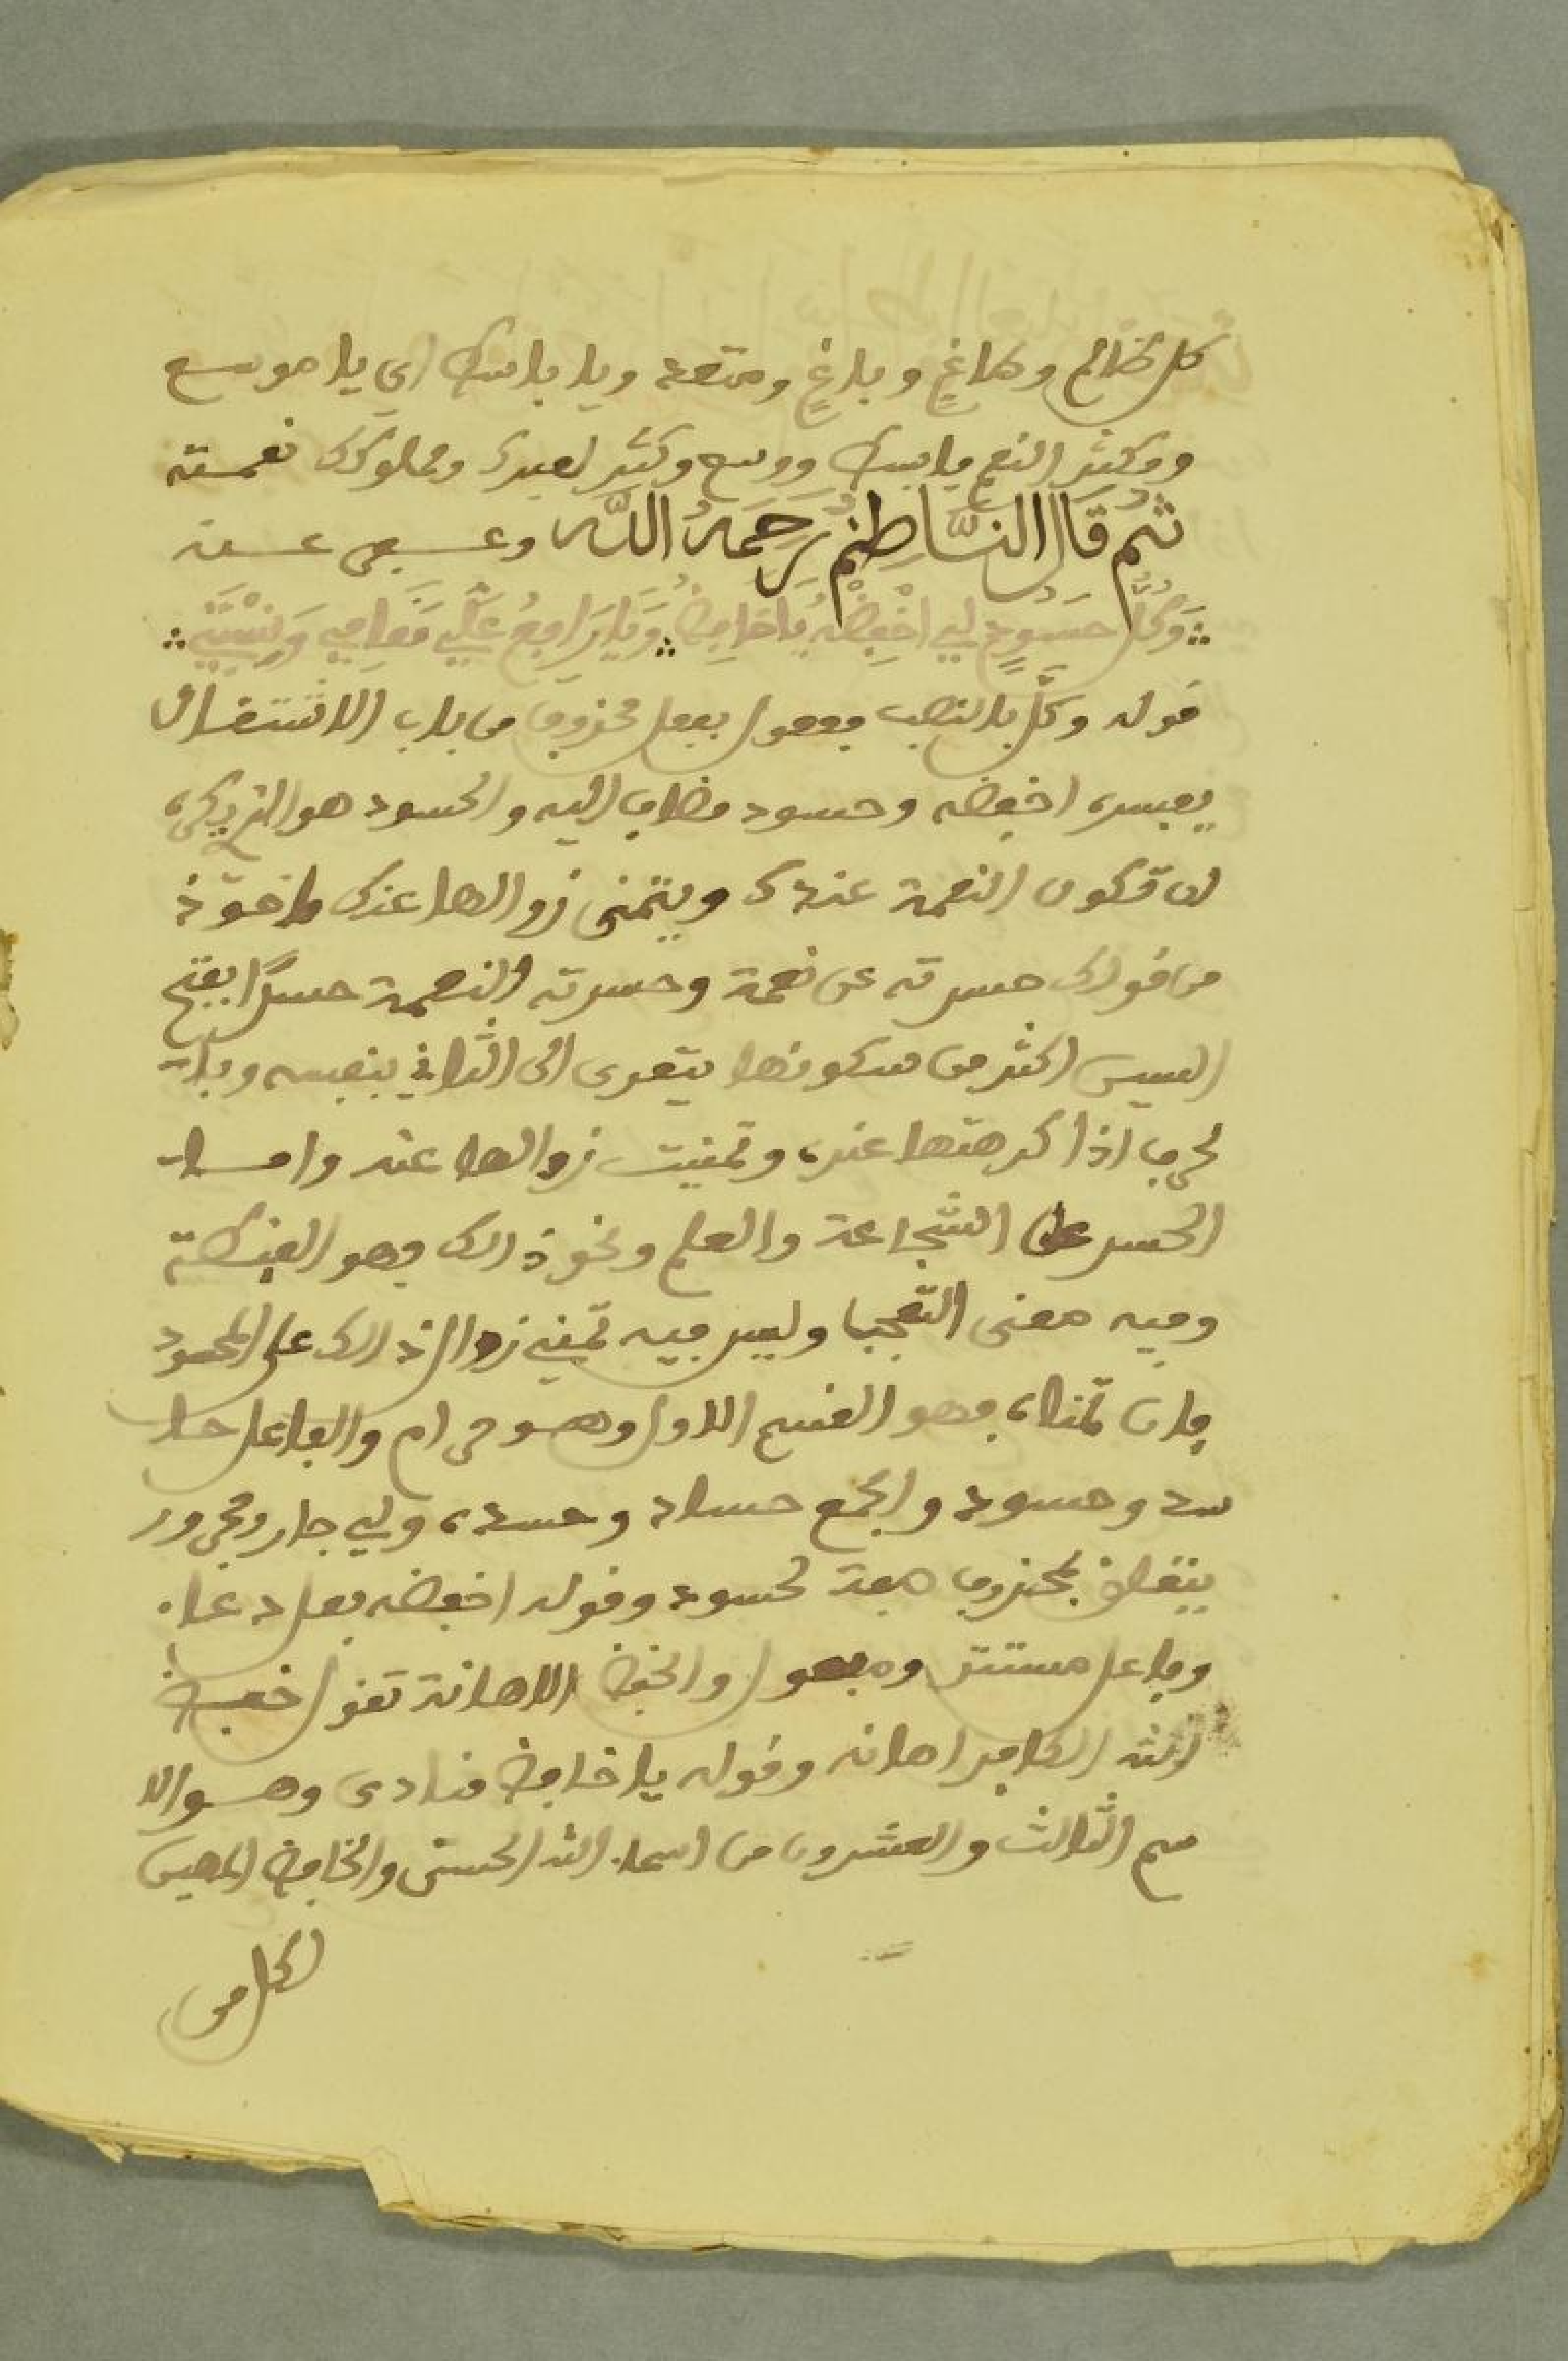 كل ظالم وطاغٍ وباغٍ ومتعد ويا باسط اي يا موسع
ومكثر النعم فابسط ووسع وكثر لعبدك ومملوكك نعمته
ثُمَّ قَالَ النَّاظِمُ رَحِمَهُ اللَّه وعفى عنه
وَكُلَّ حَسُودٍ لِي اخْفِضْهُ يَا خَافِضُ وَيَا رَافِعُ عَلِّي مَقَامِي وَنِسْبَتِي
قوله وكلَّ بالنصب مفعول بفعل محذوف من باب الاشتغال
يفسره اخفضه وحسود مضاف اليه والحسود هو الذي يكره
ان تكون النعمة عندك ويتمنى زوالها عنك ماخوذ
من قولك حسدته على نعمة وحسدته النعمة حسدًا بفتح
السين اكثر من سكونها يتعدى الى الثاني بنفسه وبالـ
حرف اذا كرهتها عنده وتمنيت زوالها عنه واما
الحسد على الشجاعة والعلم ونحو ذالك فهو الغبطة
وفيه معنى التعجب وليس فيه تمني زوال ذالك على المحسود
فان تمناه فهو القسم الاول وهو حرام والفاعل حا
سد وحسود والجمع حساد وحسدة ولي جار ومجرور
يتعلق بمحذوف صفة لحسود وقوله اخفضه فعل دعاء
وفاعل مستتر ومفعول والخفض الاهانة تقول خفض
الله الكافر اهانه وقوله يا خافض منادى وهو الا
سم الثالث والعشرون من اسماء الله الحسنى والخافض المهين
لكل من